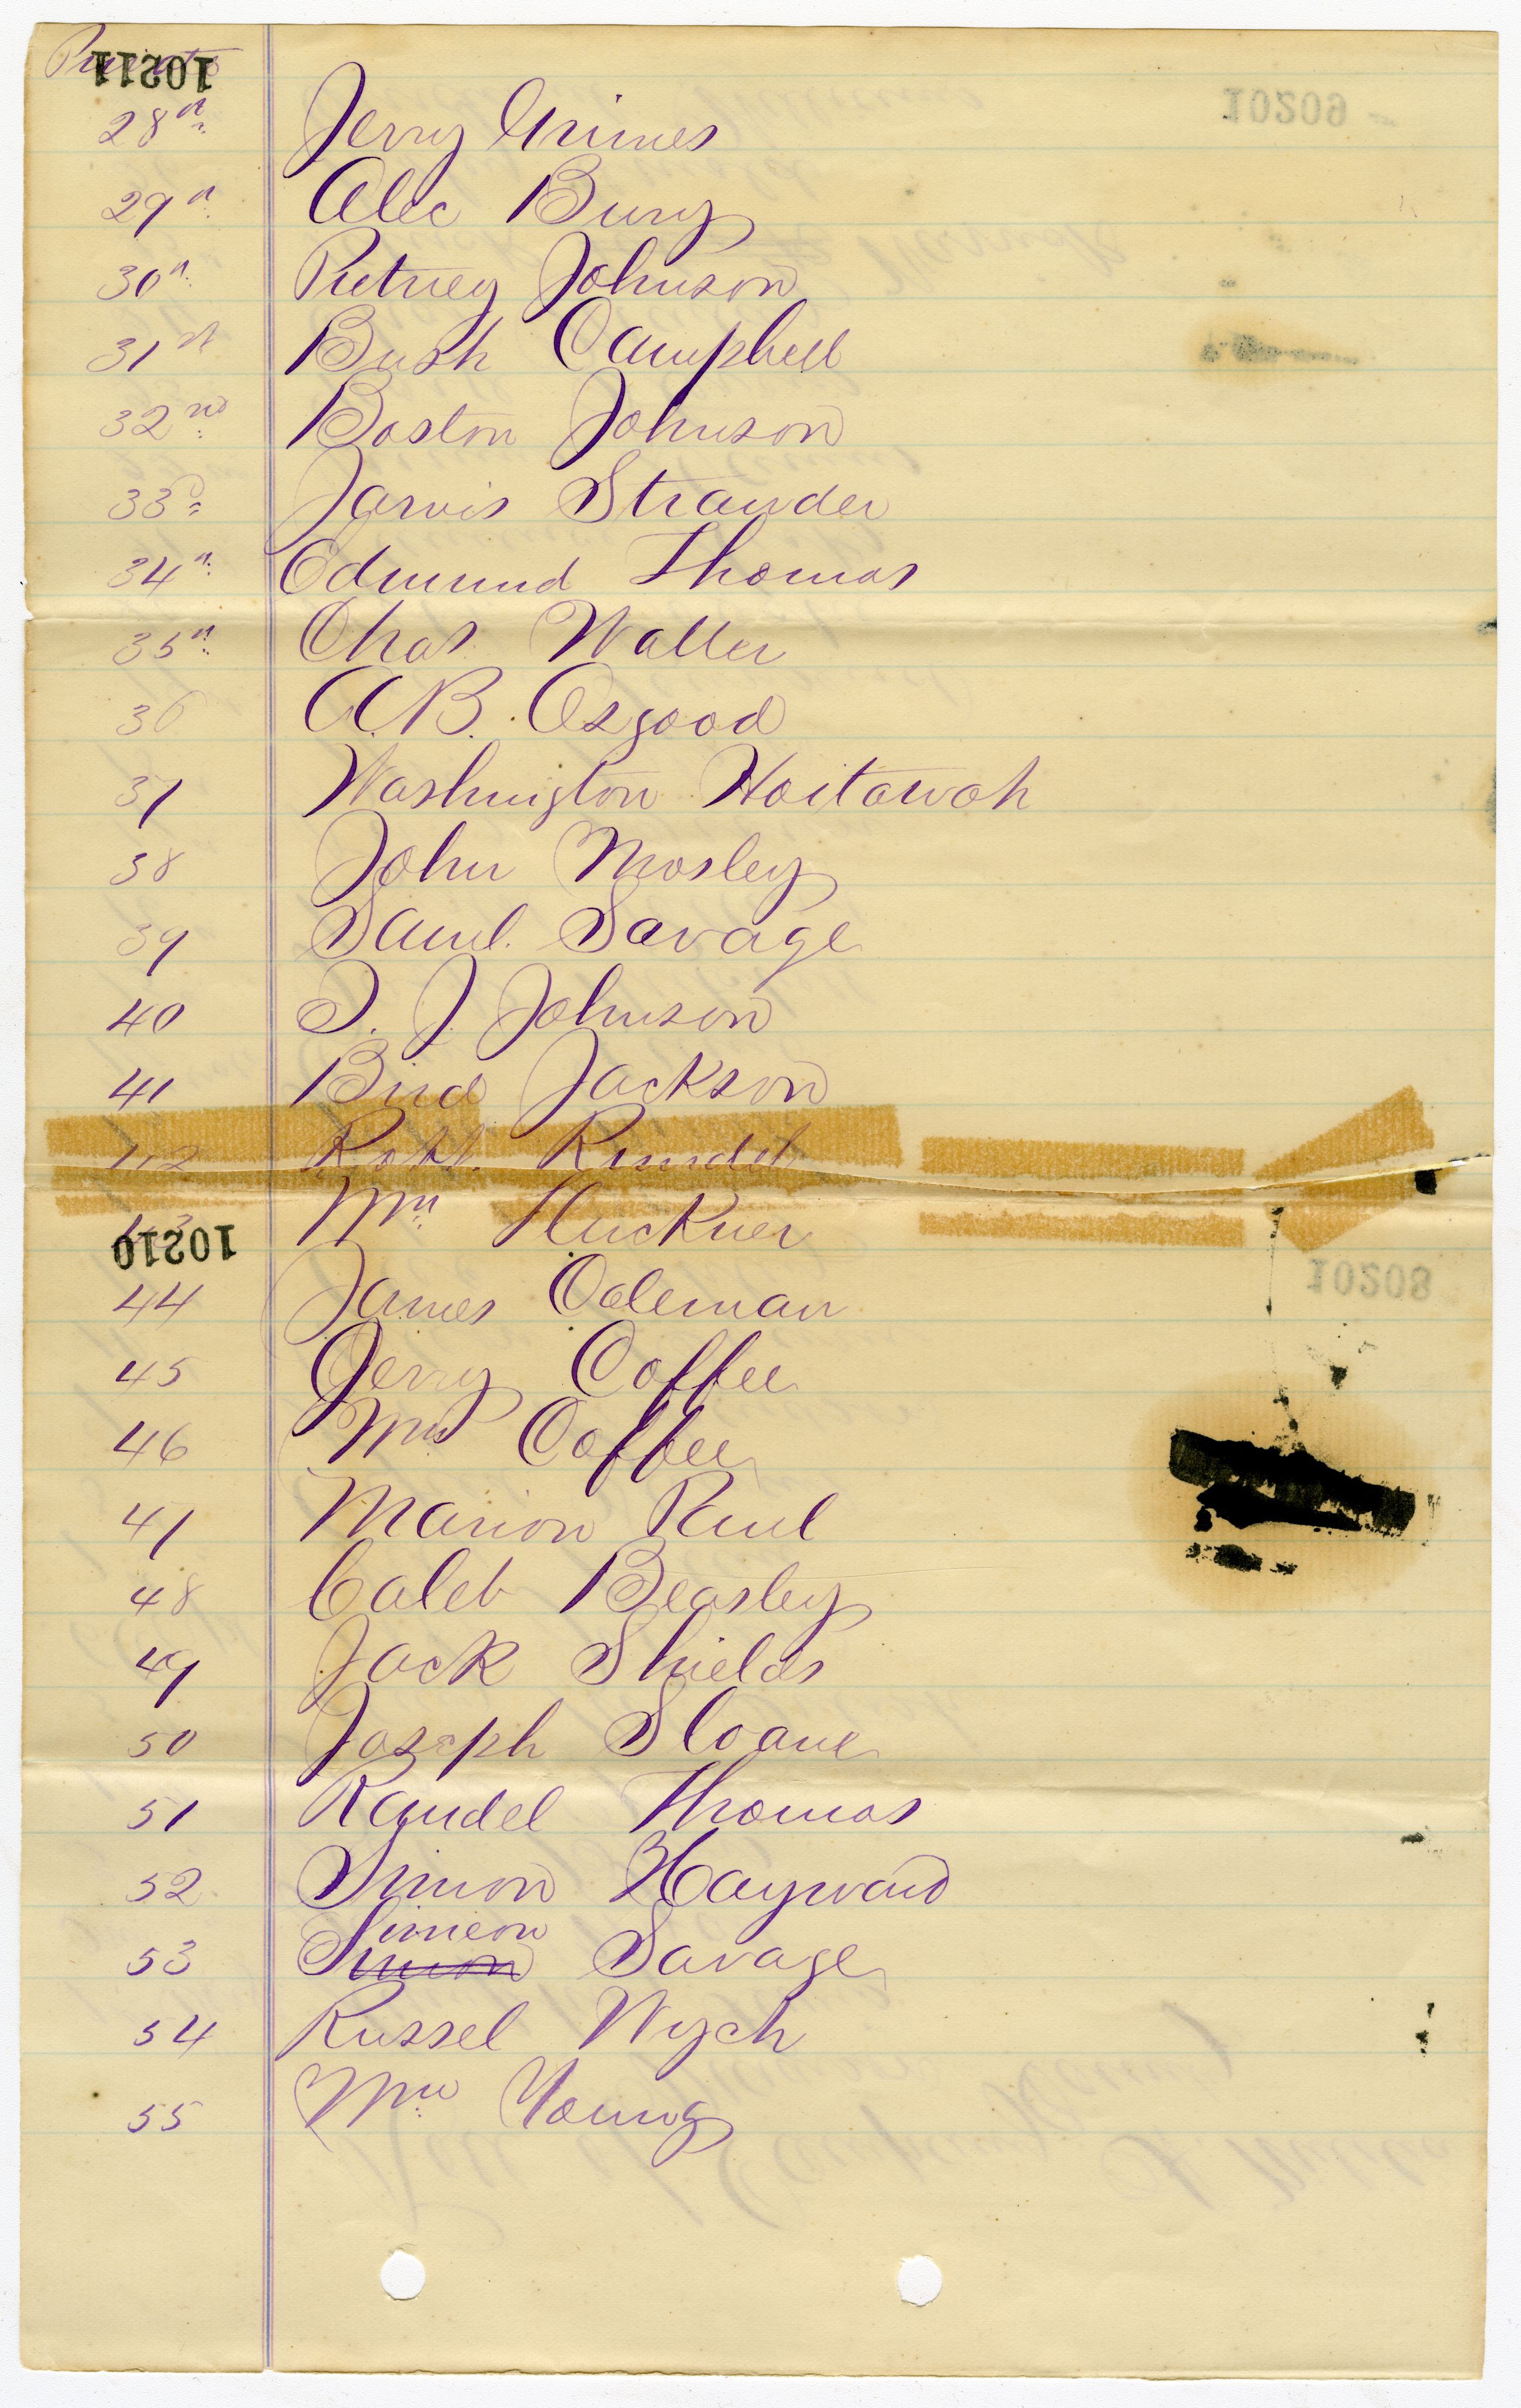 Privates
10211
10209
28th Jerry Grimes
29th Alec Burg
30th Putney Johnson
31st Bush Campbell
32nd Boston Johnson
33d Jarvis Strander
34th Edmund Thomas
35th Chas Waller
36 A.B. Osgood
37 Washington Hoitowoh
38 John Mosley
39 Saml. Savage
40 S. J. Johnson
41 Bird Jackson
42 Robt. Rundel
43 Wm Huckner
10210
44 James Coleman
10208
45 Jerry Coffee
46 Wm Coffee
47 Marion Paul
48 Caleb Beasley
49 Jack Shields
50 Joseph Sloane
51 Randel Thomas
52 Simon Hayward
Simeon
53 Simon Savage
54 Russel Wych
55 Wm Young